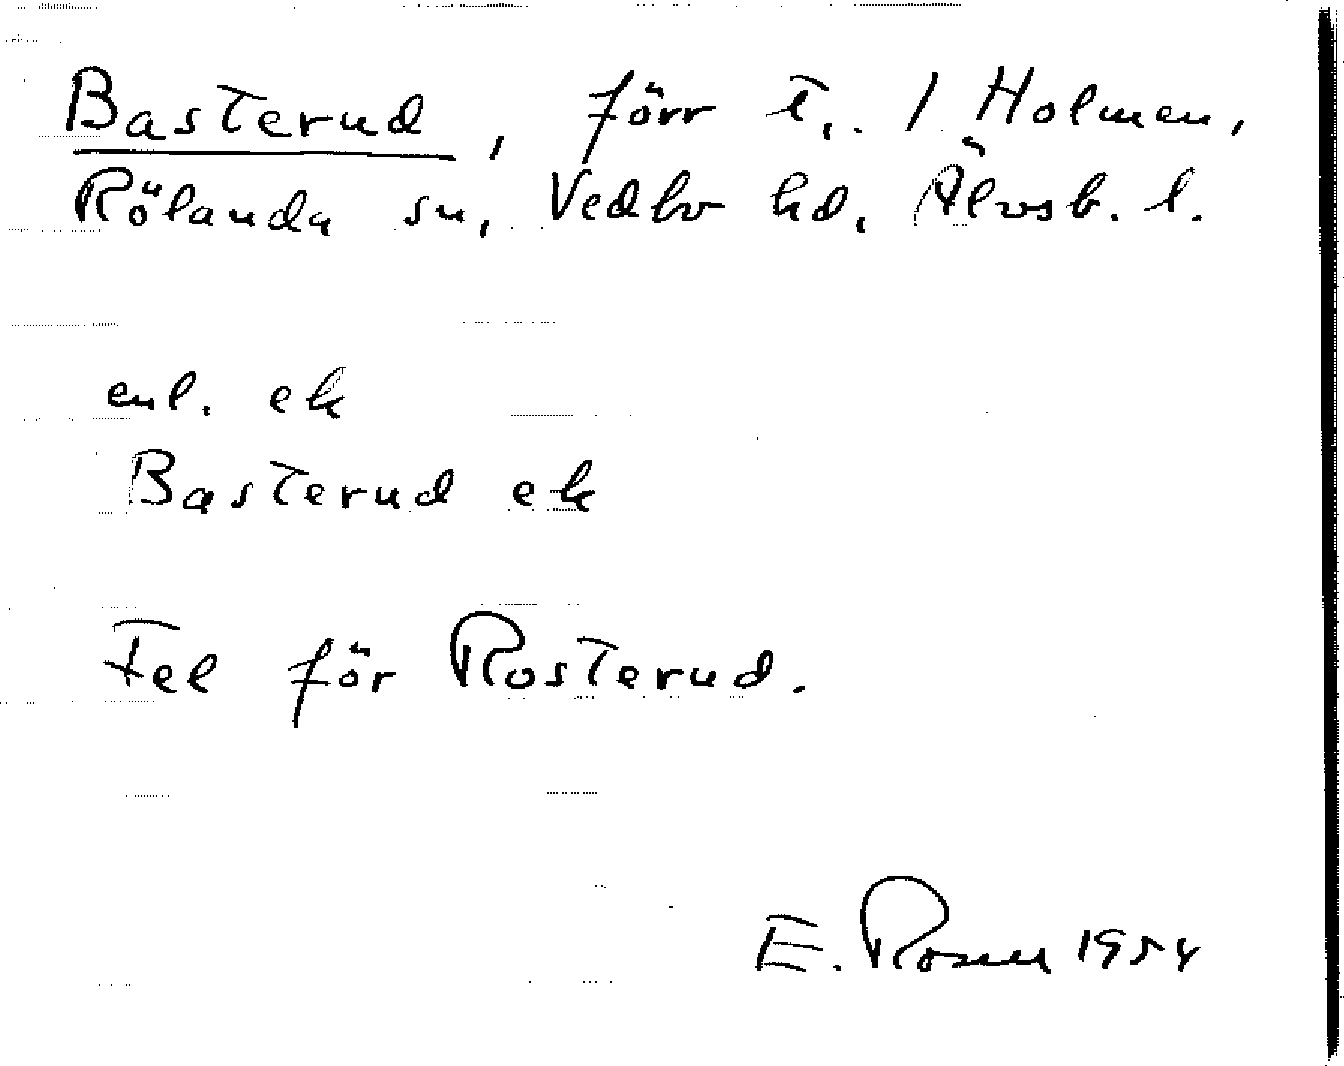 Basterud, förr t. / Holmen,
Rölanda sn, Vedbo hd, Älvsb. l.
enl. ek
Basterud ek
Fel för Rosterud.
E. Rosell 1954